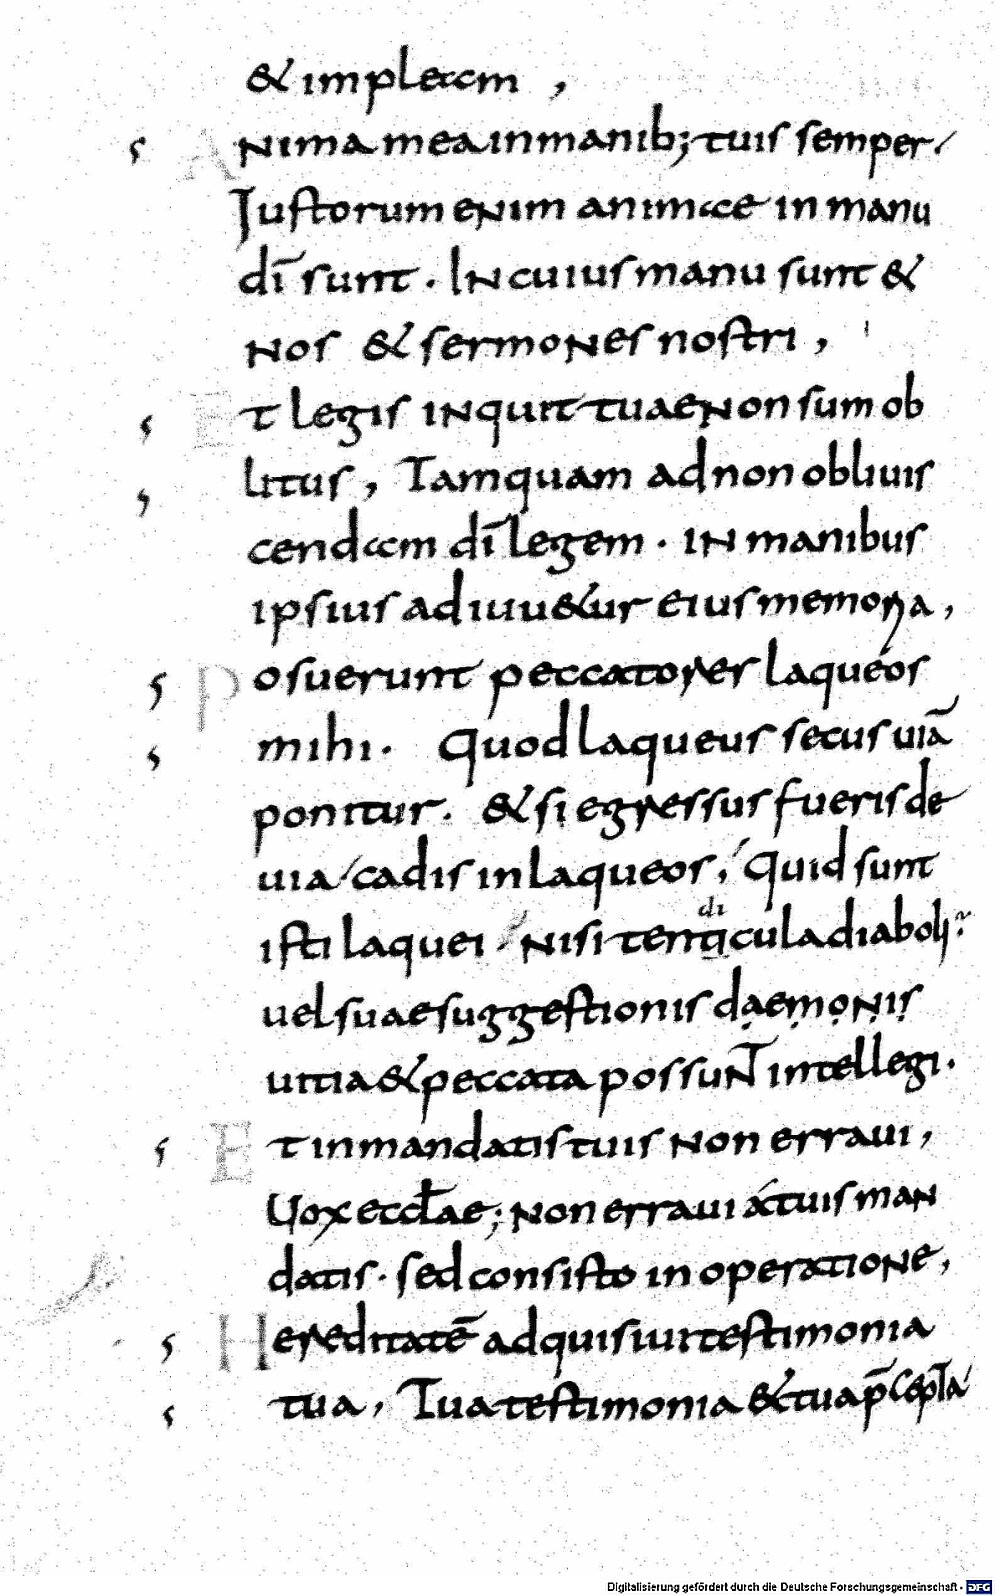 & impleam ,
Anima mea in manib; tuis semper.
Iustorum enim animae in manu
dī sunt . In cuius manu sunt &
nos & sermones nostri ,
Et legis inquit tuae non sum ob
litus , Tamquam ad non obliuis
cendam dī legem . in manibus
ipsius adiuu&ur eius memoria ,
Posuerunt peccatores laqueos
mihi . Quod laqueus secus uiā
ponitur . & si egressus fueris de
uia / cadis in laqueos , Quid sunt
di
isti laquei . nisi tenticula diaboli
uel suae suggestionis daemonis
uitia & peccata possunt̄ intellegi .
Et in mandatis tuis non erraui ,
Uox eccl̄ae ; non erraui a tuis man
datis . sed consisto in operatione ,
Hereditatē adquisiui testimonia
tua , Tua testimonia & tua p̄cepta
Digitalisierung gefördert durch die Deutsche Forschungsgemeinschaft - DFG